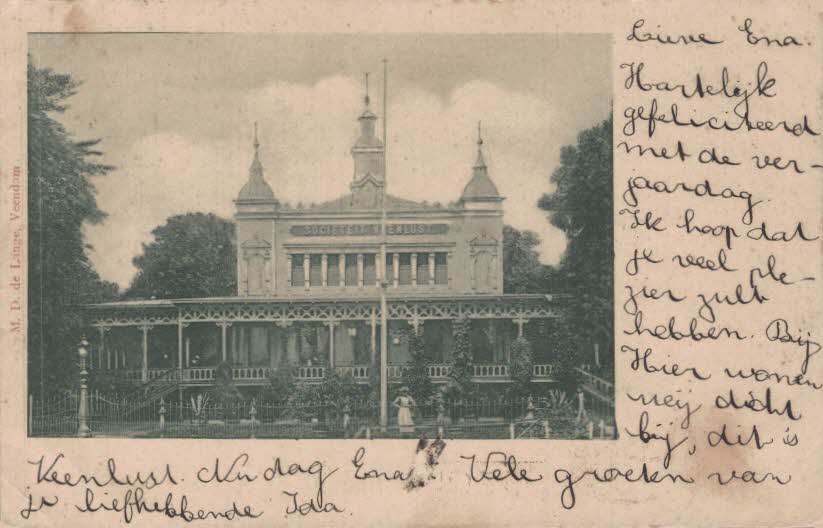 Lieve Ena.
Hartelijk
gefeliciteerd
met de ver-
jaardag.
Ik hoop dat
je veel ple-
zier zult
hebben. Bij
Hier wonen
wij dicht
bij, dit is
Veenlust. Nu dag Ena. Vele groeten van
je liefhebbende Ida.
SOCIETEIT VEENLUST
M. D. de Lange, Veendam